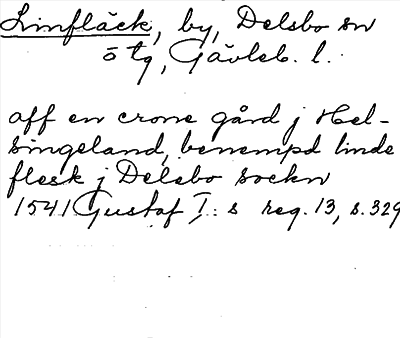 Linfläck, by, Delsbo sn
ö tg, Gävleb. l.
aff en crone gård j Hel-
singeland, benempd linde
fleck j Delsbo sockn
1541 Gustaf I:s reg. 13, s. 329